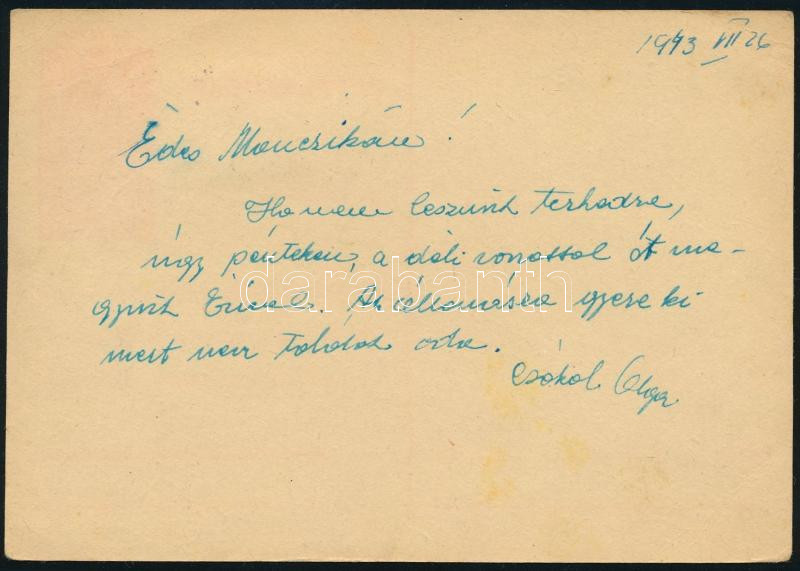 1943 VII 26
Édes Manczikám!
Ha nem leszünk terhedre,
úgy pénteken, a déli vonattal át me-
gyünk Érival. Az állomásra gyere ki
mert nem találok oda.
Csókol Olga
darabanth